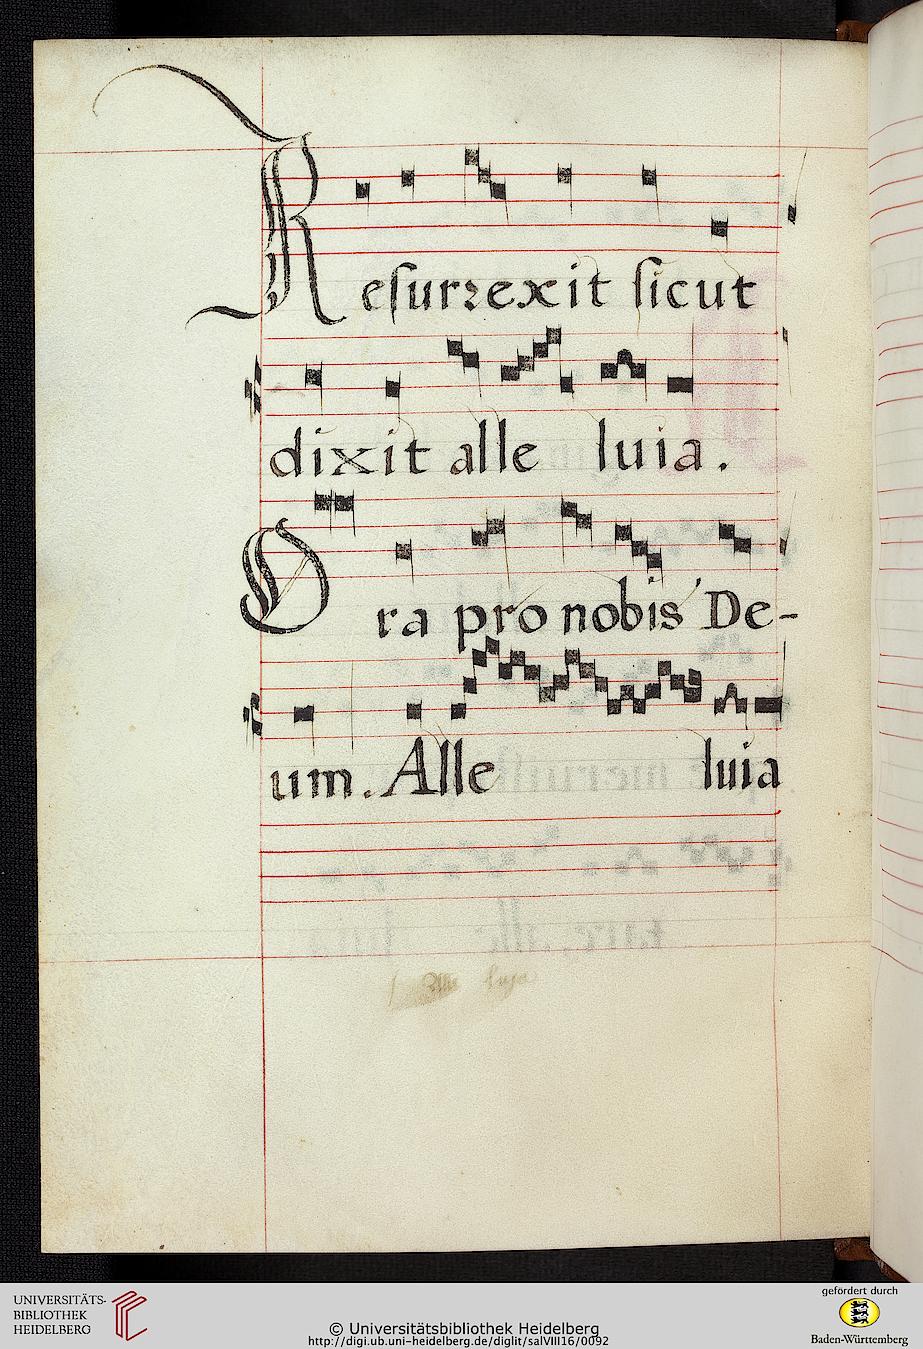 Reſurrexit ſicut
dixit alle luia.
Ora pro nobis De-
um. Alle luia
UNIVERSITÄTS-
BIBLIOTHEK
HEIDELBERG
© Universitätsbibliothek Heidelberg
http://digi.ub.uni-heidelberg.de/diglit/salVIII16/0092
gefördert durch
Baden-Württemberg